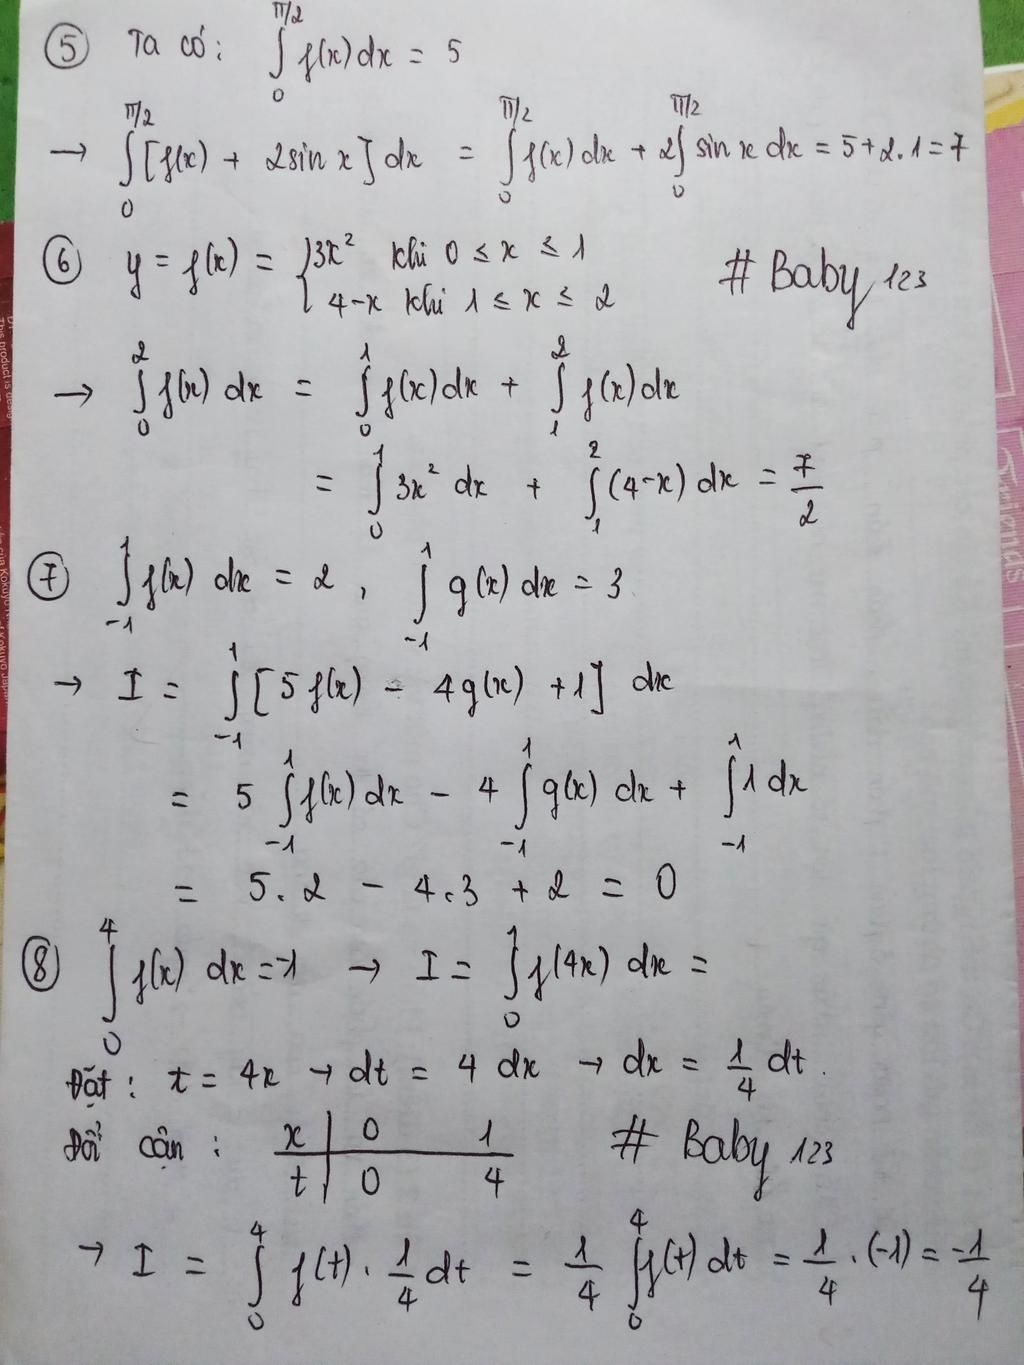 ⑤ Ta có: ∫₀^{π/2} f(x) dx = 5
→ ∫₀^{π/2} [f(x) + 2sin x] dx = ∫₀^{π/2} f(x) dx + 2∫₀^{π/2} sin x dx = 5+2.1=7
⑥ y = f(x) = { 3x² khi 0 ≤ x ≤ 1
4-x khi 1 ≤ x ≤ 2
# Baby 123
→ ∫₀² f(x) dx = ∫₀¹ f(x) dx + ∫₁² f(x) dx
= ∫₀¹ 3x² dx + ∫₁² (4-x) dx = 7/2
⑦ ∫₋₁¹ f(x) dx = 2, ∫₋₁¹ g(x) dx = 3
→ I = ∫₋₁¹ [5f(x) - 4g(x) +1] dx
= 5 ∫₋₁¹ f(x) dx - 4 ∫₋₁¹ g(x) dx + ∫₋₁¹ 1 dx
= 5.2 - 4.3 + 2 = 0
⑧ ∫₀⁴ f(x) dx = -1 → I = ∫₀¹ f(4x) dx =
Đặt: t = 4x → dt = 4 dx → dx = 1/4 dt.
Đổi cận: x | 0 1
t | 0 4
# Baby 123
→ I = ∫₀⁴ f(t) . 1/4 dt = 1/4 ∫₀⁴ f(t) dt = 1/4 . (-1) = -1/4